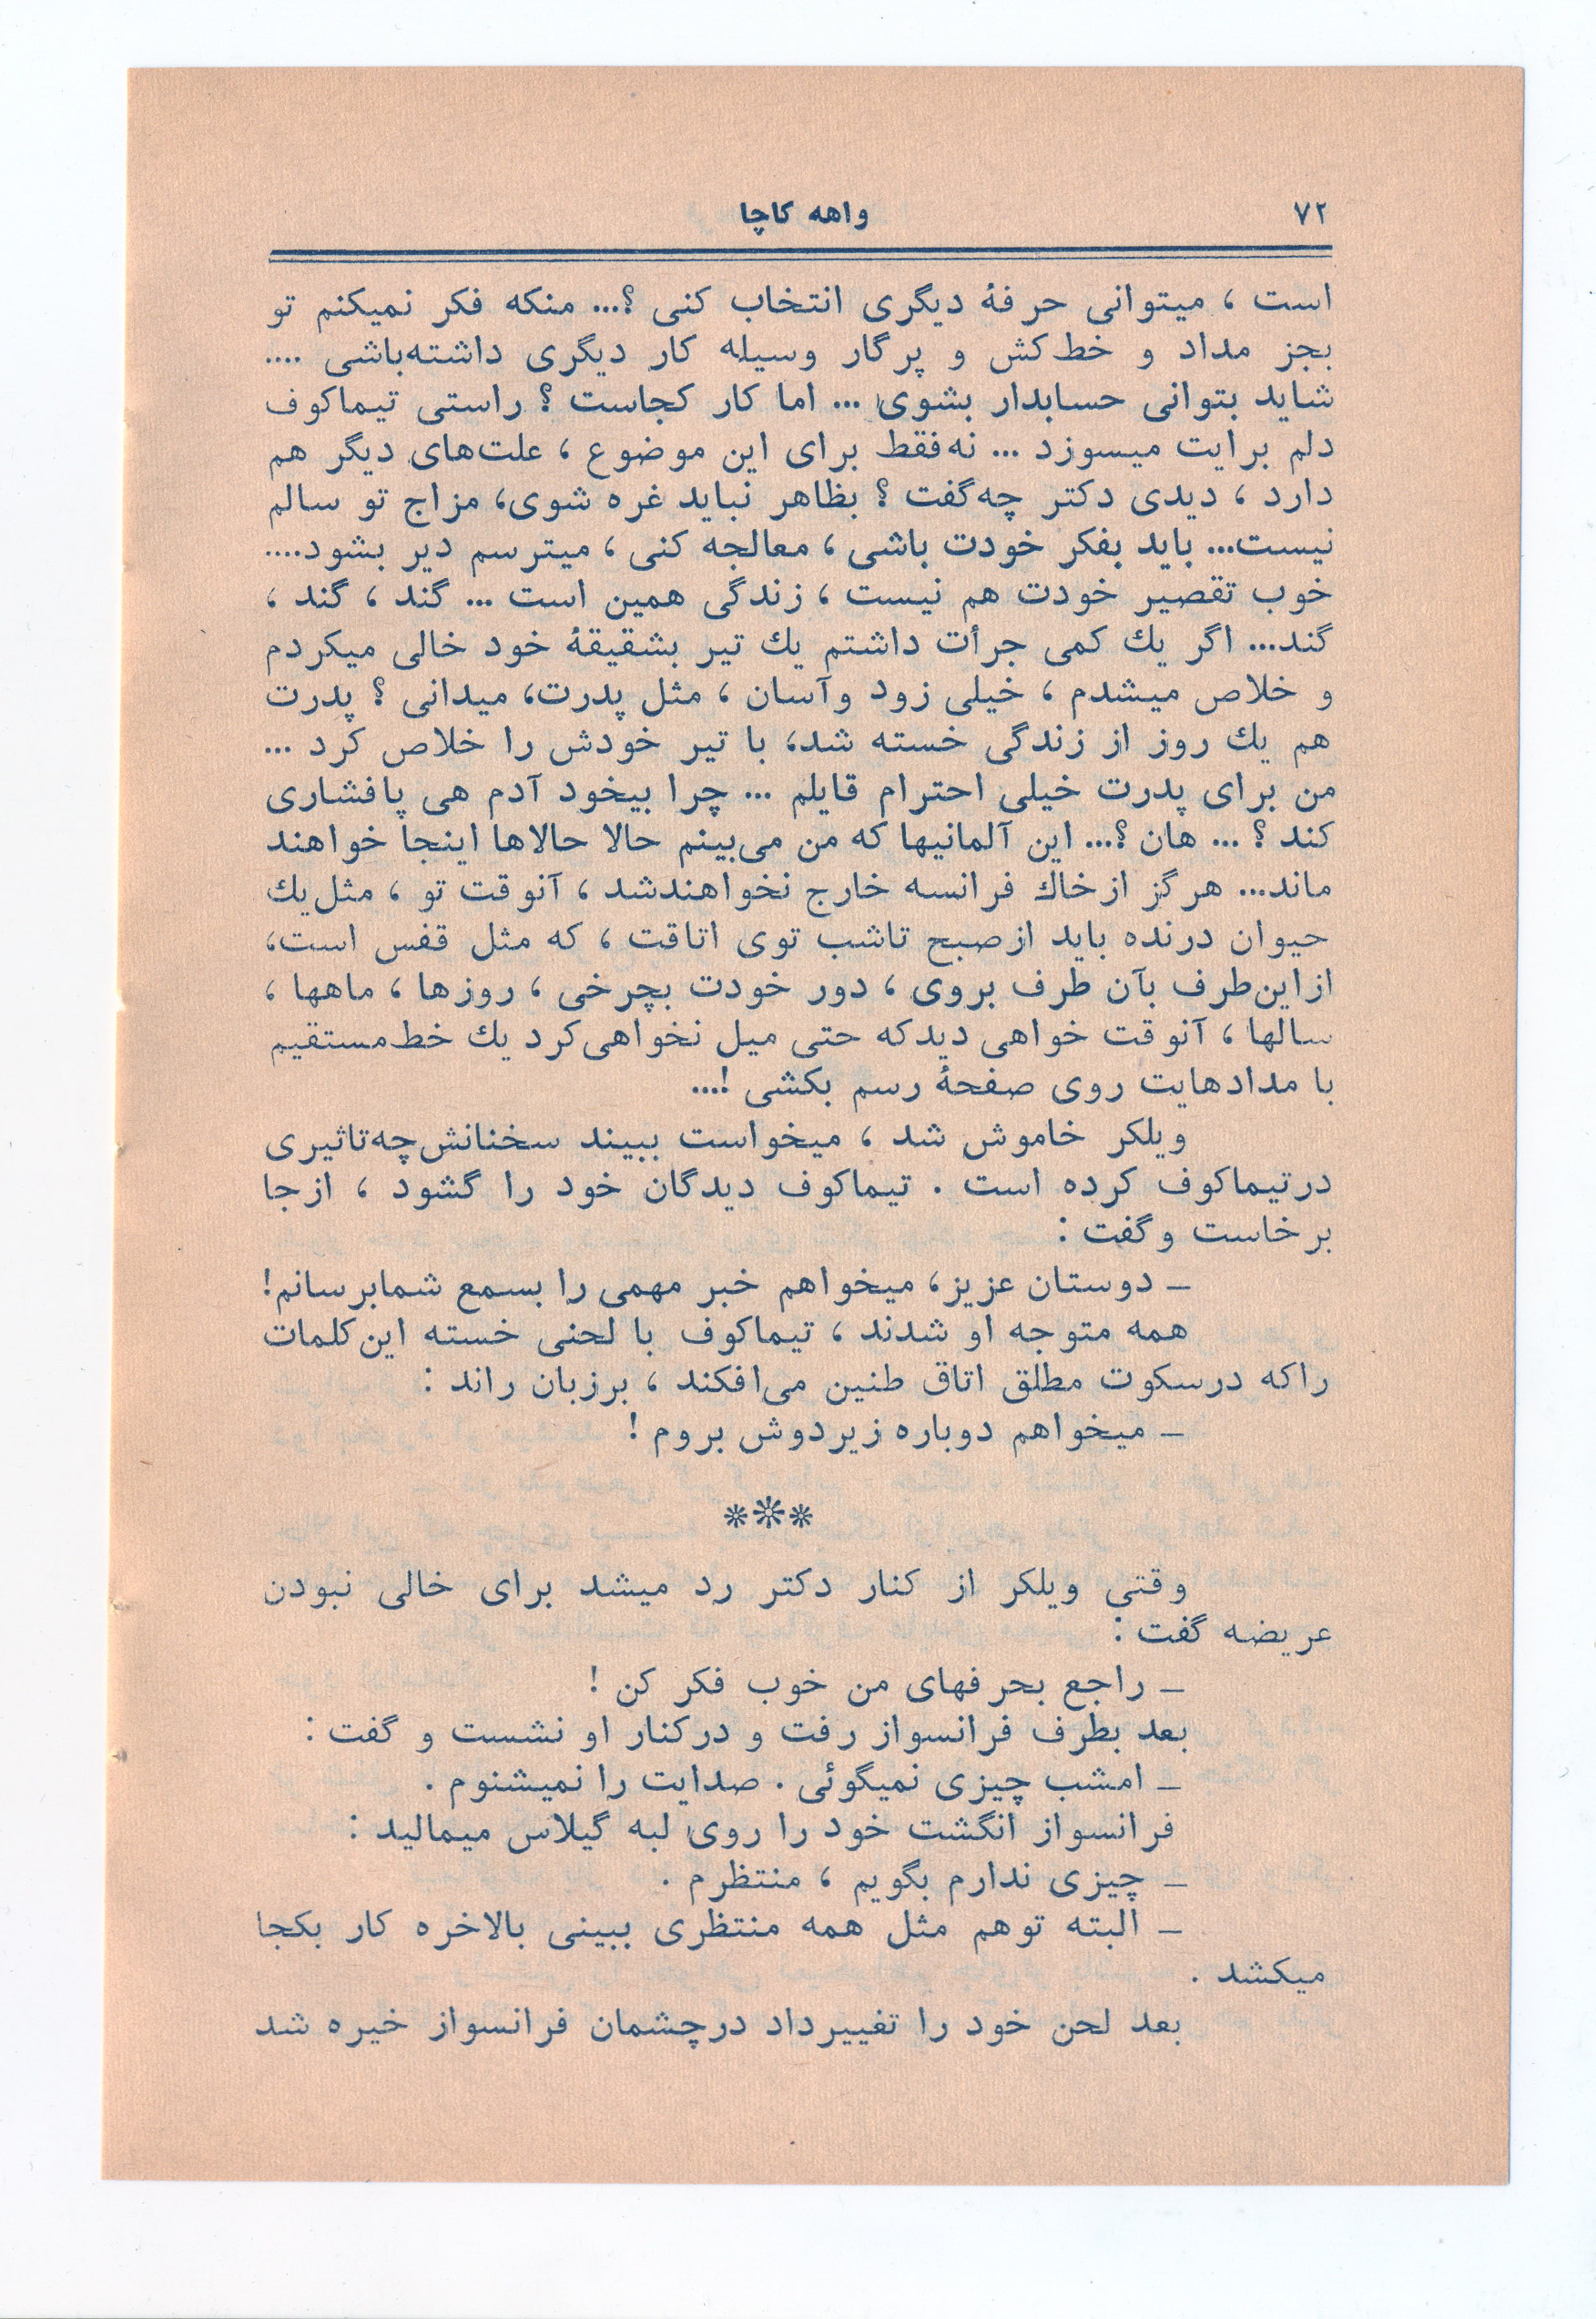 ۷۲
واهه کاچا
است ، میتوانی حرفهٔ دیگری انتخاب کنی ؟... منکه فکر نمیکنم تو
بجز مداد و خط‌کش و پرگار وسیله کار دیگری داشته‌باشی ....
شاید بتوانی حسابدار بشوی ... اما کار کجاست ؟ راستی تیماکوف
دلم برایت میسوزد ... نه‌فقط برای این موضوع ، علت‌های دیگر هم
دارد ، دیدی دکتر چه‌گفت ؟ بظاهر نباید غره شوی، مزاج تو سالم
نیست... باید بفکر خودت باشی ، معالجه کنی ، میترسم دیر بشود....
خوب تقصیر خودت هم نیست ، زندگی همین است ... گند ، گند ،
گند... اگر یك کمی جرأت داشتم یك تیر بشقیقهٔ خود خالی میکردم
و خلاص میشدم ، خیلی زود وآسان ، مثل پدرت، میدانی ؟ پدرت
هم یك روز از زندگی خسته شد، با تیر خودش را خلاص کرد ...
من برای پدرت خیلی احترام قایلم ... چرا بیخود آدم هی پافشاری
کند ؟ ... هان ؟... این آلمانیها که من می‌بینم حالا حالاها اینجا خواهند
ماند... هرگز ازخاك فرانسه خارج نخواهندشد ، آنوقت تو ، مثل‌یك
حیوان درنده باید ازصبح تاشب توی اتاقت ، که مثل قفس است،
ازاین‌طرف بآن طرف بروی ، دور خودت بچرخی ، روزها ، ماهها ،
سالها ، آنوقت خواهی دیدکه حتی میل نخواهی‌کرد یك خط‌مستقیم
با مدادهایت روی صفحهٔ رسم بکشی !...
ویلکر خاموش شد ، میخواست ببیند سخنانش‌چه‌تاثیری
درتیماکوف کرده است . تیماکوف دیدگان خود را گشود ، ازجا
برخاست وگفت :
ـ دوستان عزیز، میخواهم خبر مهمی را بسمع شمابرسانم!
همه متوجه او شدند ، تیماکوف با لحنی خسته این‌کلمات
راکه درسکوت مطلق اتاق طنین می‌افکند ، برزبان راند :
ـ میخواهم دوباره زیردوش بروم !
***
وقتی ویلکر از کنار دکتر رد میشد برای خالی نبودن
عریضه گفت :
ـ راجع بحرفهای من خوب فکر کن !
بعد بطرف فرانسواز رفت و درکنار او نشست و گفت :
ـ امشب چیزی نمیگوئی . صدایت را نمیشنوم .
فرانسواز انگشت خود را روی لبه گیلاس میمالید :
ـ چیزی ندارم بگویم ، منتظرم .
ـ البته توهم مثل همه منتظری ببینی بالاخره کار بکجا
میکشد .
بعد لحن خود را تغییرداد درچشمان فرانسواز خیره شد